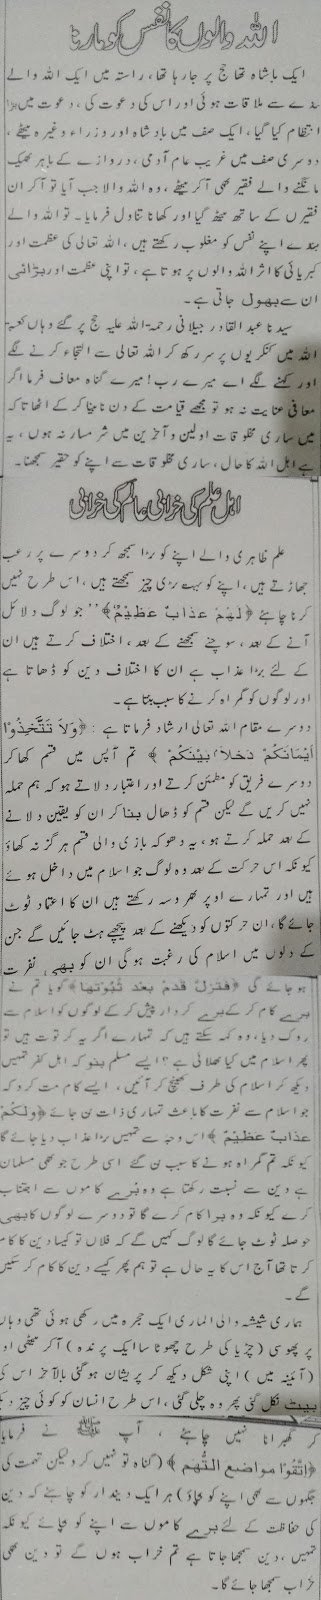 اللہ والوں کا نفس کو مارنا
ایک بادشاہ تھا حج پر جارہا تھا، راستہ میں ایک اللہ والے
بندے سے ملاقات ہوئی اور اس کی دعوت کی، دعوت میں بڑا
انتظام کیا گیا، ایک صف میں بادشاہ اور وزراء وغیرہ بیٹھے،
دوسری صف میں غریب عام آدمی، دروازے کے باہر بھیک
مانگنے والے فقیر بھی آکر بیٹھے، وہ اللہ والا جب آیا تو آکر ان
فقیروں کے ساتھ بیٹھ گیا اور کھانا تناول فرمایا۔ تو اللہ والے
بندے اپنے نفس کو مغلوب رکھتے ہیں، اللہ تعالیٰ کی عظمت اور
کبریائی کا اثر اللہ والوں پر ہوتا ہے، تو اپنی عظمت اور بڑائی
ان سے بھول جاتی ہے۔
سیدنا عبد القادر جیلانی رحمۃ اللہ علیہ حج پر گئے وہاں کعبۃ
اللہ میں کنکریوں پر سر رکھ کر اللہ تعالیٰ سے التجاء کرنے لگے
اور کہنے لگے اے میرے رب! میرے گناہ معاف فرما اگر
معافی عنایت نہ ہو تو مجھے قیامت کے دن نابینا کرکے اٹھا تاکہ
میں ساری مخلوقات اولین و آخرین میں شرمسار نہ ہوں، یہ
ہے اہل اللہ کا حال، ساری مخلوقات سے اپنے کو حقیر سمجھنا۔
اہل علم کی خرابی عالَم کی خرابی
علم ظاہری والے اپنے کو بڑا سمجھ کر دوسرے پر رعب
جھاڑتے ہیں، اپنے کو بہت بڑی چیز سمجھتے ہیں، اس طرح نہیں
کرنا چاہئے ﴿لَهُمْ عَذَابٌ عَظِيْمٌ﴾ ’’جو لوگ دلائل
آنے کے بعد، سوچنے سمجھنے کے بعد، اختلاف کرتے ہیں ان
کے لئے بڑا عذاب ہے ان کا اختلاف دین کو ڈھاتا ہے
اور لوگوں کو گمراہ کرنے کا سبب بنتا ہے۔
دوسرے مقام اللہ تعالیٰ ارشاد فرماتا ہے: ﴿وَلَا تَتَّخِذُوْا
اَيْمَانَكُمْ دَخَلاً بَيْنَكُمْ﴾ تم آپس میں قسم کھاکر
دوسرے فریق کو مطمئن کرتے اور اعتبار دلاتے ہو کہ ہم حملہ
نہیں کریں گے لیکن قسم کو ڈھال بناکر ان کو یقین دلانے
کے بعد حملہ کرتے ہو، یہ دھوکہ بازی والی قسم ہرگز نہ کھاؤ
کیونکہ اس حرکت کے بعد وہ لوگ جو اسلام میں داخل ہوئے
ہیں اور تمہارے اوپر بھروسہ رکھتے ہیں ان کا اعتماد ٹوٹ
جائے گا، ان حرکتوں کو دیکھنے کے بعد پیچھے ہٹ جائیں گے جن
کے دلوں میں اسلام کی رغبت ہوگی ان کو بھی نفرت
ہو جائے گی ﴿فَتَزِلَّ قَدَمٌ بَعْدَ ثُبُوْتِهَا﴾ گویا تم نے
برے کام کرکے برے کردار پیش کرکے لوگوں کو اسلام سے
روک دیا، وہ کہہ سکتے ہیں کہ تمہارے اگر یہ کرتوت ہیں تو
پھر اسلام میں کیا بھلائی ہے؟ ایسے مسلم بنو کہ اہل کفر تمہیں
دیکھ کر اسلام کی طرف کھنچ کر آئیں، ایسے کام مت کرو کہ
جو اسلام سے نفرت کا باعث تمہاری ذات بن جائے ﴿وَلَكُمْ
عَذَابٌ عَظِيْمٌ﴾ اس وجہ سے تمہیں بڑا عذاب دیا جائے گا
کیونکہ تم گمراہ ہونے کا سبب بن گئے اسی طرح جو بھی مسلمان
ہے دین سے نسبت رکھتا ہے وہ برے کاموں سے اجتناب
کرے کیونکہ وہ برا کام کرے گا تو دوسرے لوگوں کا بھی
حوصلہ ٹوٹ جائے گا لوگ کہیں گے کہ فلاں تو کیسا دین کا کام
کرتا تھا آج اس کا یہ حال ہے تو ہم پھر کیسے دین کا کام کر سکیں
گے۔
ہماری شیشہ والی الماری ایک حجرہ میں رکھی ہوئی تھی وہاں
پر پھوسی (چڑیا کی طرح چھوٹا سا ایک پرندہ) آکر بیٹھی اور
(آئینہ میں) اپنی شکل دیکھ کر پریشان ہوگئی بالآخر اس کی
بیٹ نکل گئی پھر وہ چلی گئی، اس طرح انسان کو کوئی چیز دیکھ
کر گھبرانا نہیں چاہئے، آپ ﷺ نے فرمایا
﴿اِتَّقُوْا مَوَاضِعَ التُّهَمِ﴾ (گناہ تو نہیں کرو لیکن تہمت کی
جگہوں سے بھی اپنے کو بچاؤ) ہر ایک دیندار کو چاہئے کہ دین
کی حفاظت کے لئے برے کاموں سے اپنے کو بچائے کیونکہ
تمہیں، دین سمجھا جاتا ہے تم خراب ہوں گے تو دین بھی
خراب سمجھا جائے گا۔